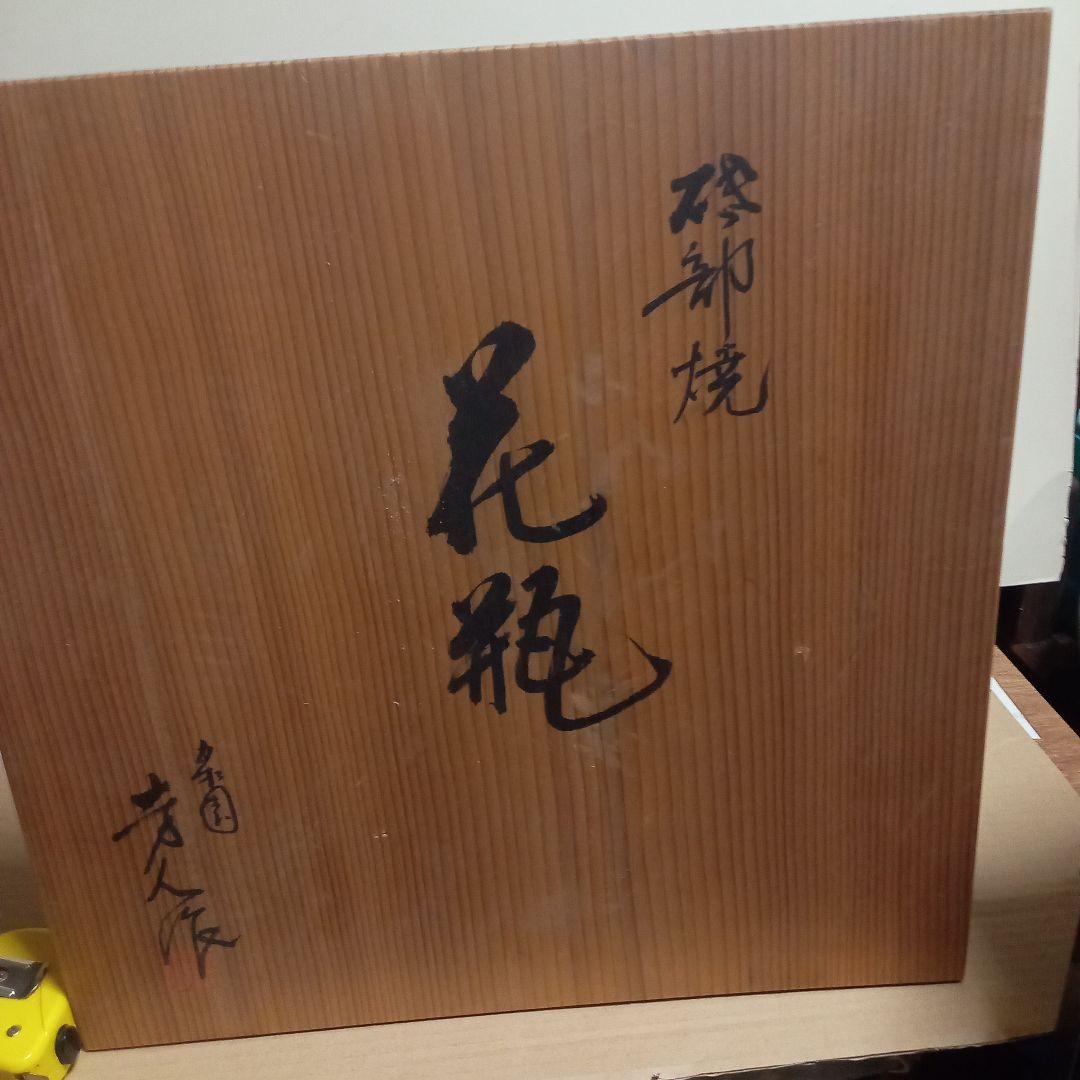 砥部焼
花瓶
芳人作